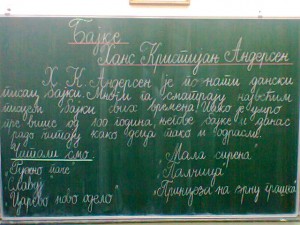 Бајке
Ханс Кристијан Андерсен
Х. К. Андерсен је познати дански
писац бајки. Многи га сматрају највећим
писцем бајки свих времена! Иако је умро
пре више од 100 година, његове бајке и данас
радо читају како деца тако и одрасли.
Читали смо:
"Ружно паче"
"Славуј"
"Царево ново одело"
"Мала сирена"
"Палчица"
"Принцеза на зрну грашка"